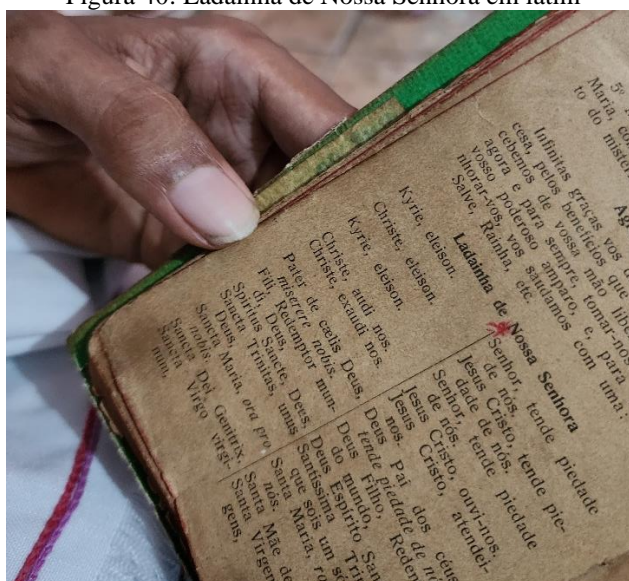 Figura 40: Ladainha de Nossa Senhora em latim
5º
Maria,
to do
Infinitas graças vos
cesa, pelos benefícios que
cebemos de vossa mão
agora e para sempre, tomar-nos
vosso poderoso amparo, e, para
nhorar-vos, vos saudamos com uma:
Salve, Rainha, etc.
Ladainha de Nossa Senhora
Kyrie, eleison.
Christe, eleison.
Kyrie, eleison.
Christe, audi nos.
Christe, exaudi nos.
Pater de cælis Deus,
miserere nobis.
Fili, Redemptor mun-
di, Deus,
Spiritus Sancte, Deus,
Sancta Trinitas, unus
Deus,
Sancta Maria, ora pro
nobis.
Sancta Dei Genitrix,
Sancta Virgo virgi-
num,
Senhor, tende piedade
de nós.
Jesus Cristo, tende pie-
dade de nós.
Senhor, tende piedade
de nós.
Jesus Cristo, ouvi-nos.
Jesus Cristo, atendei-
nos.
Deus Pai dos céus
tende piedade de
Deus Filho,
do mundo,
Deus Espírito
Santíssima
que sois um
Santa Maria,
nós.
Santa Mãe de
Santa Virgem
gens,